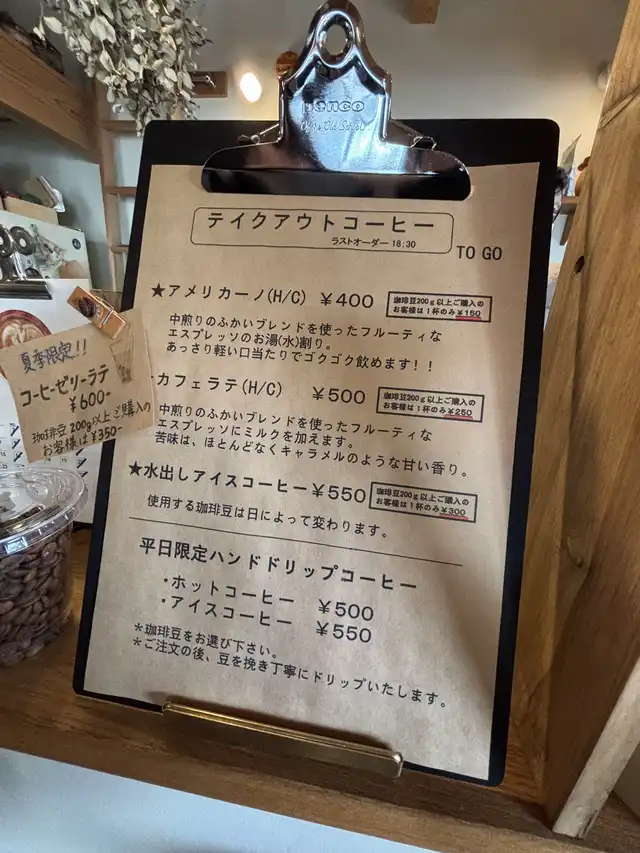 penco
テイクアウトコーヒー
ラストオーダー 18:30
TO GO
★アメリカーノ(H/C) ¥400
珈琲豆200g以上ご購入の
お客様は1杯のみ¥150
中煎りのふかいブレンドを使ったフルーティな
エスプレッソのお湯(水)割り。
あっさり軽い口当たりでゴクゴク飲めます!!
カフェラテ(H/C) ¥500
珈琲豆200g以上ご購入の
お客様は1杯のみ¥250
中煎りのふかいブレンドを使ったフルーティな
エスプレッソにミルクを加えます。
苦味は、ほとんどなくキャラメルのような甘い香り。
★水出しアイスコーヒー¥550
珈琲豆200g以上ご購入の
お客様は1杯のみ¥300
使用する珈琲豆は日によって変わります。
平日限定ハンドドリップコーヒー
・ホットコーヒー ¥500
・アイスコーヒー ¥550
*珈琲豆をお選び下さい。
*ご注文の後、豆を挽き丁寧にドリップいたします。
夏季限定!!
コーヒーゼリーラテ
¥600-
珈琲豆200g以上ご購入の
お客様は¥350-